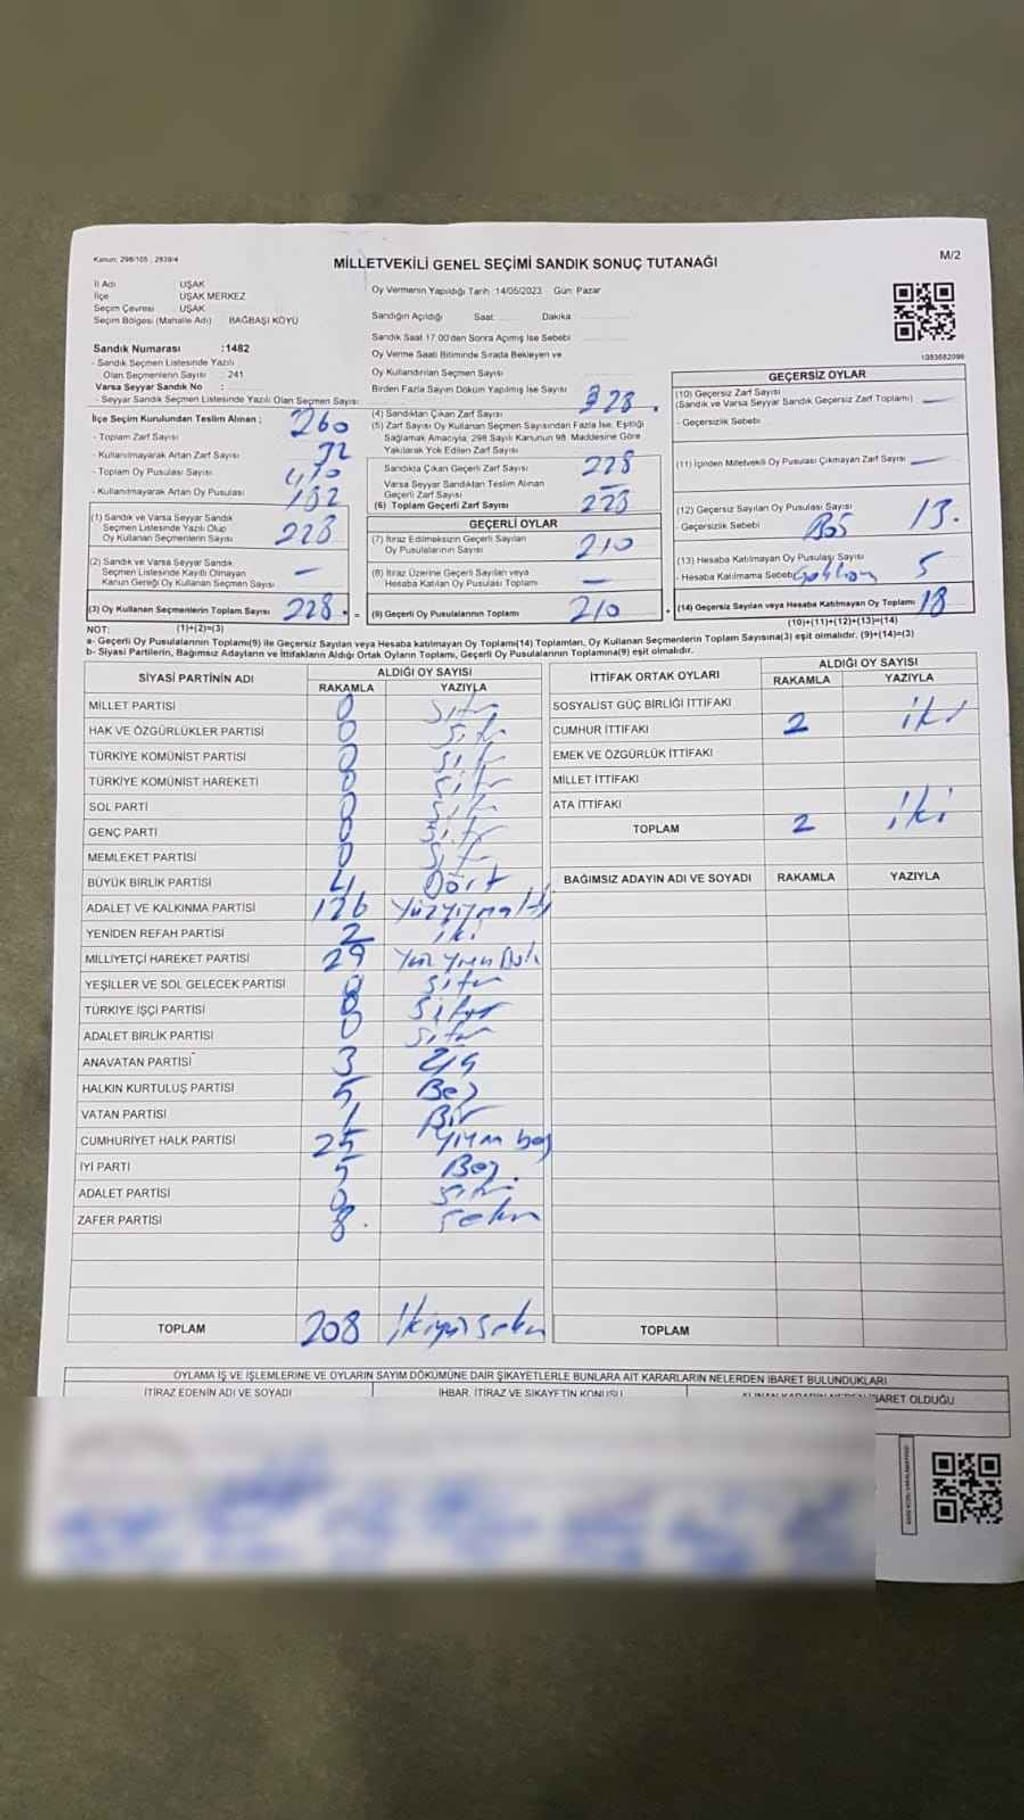 Kanun: 298/105 ; 2839/4
MİLLETVEKİLİ GENEL SEÇİMİ SANDIK SONUÇ TUTANAĞI
M/2
İl Adı : UŞAK
İlçe : UŞAK MERKEZ
Seçim Çevresi : UŞAK
Seçim Bölgesi (Mahalle Adı) : BAĞBAŞI KÖYÜ
Oy Vermenin Yapıldığı Tarih :14/05/2023 Gün: Pazar
Sandığın Açıldığı Saat: Dakika
Sandık Saat 17.00'den Sonra Açımış İse Sebebi
Oy Verme Saati Bitiminde Sırada Bekleyen ve
Oy Kullandırılan Seçmen Sayısı
Birden Fazla Sayım Döküm Yapılmış İse Sayısı
Sandık Numarası :1482
- Sandık Seçmen Listesinde Yazılı
Olan Seçmenlerin Sayısı : 241
Varsa Seyyar Sandık No :
- Seyyar Sandık Seçmen Listesinde Yazılı Olan Seçmen Sayısı:
İlçe Seçim Kurulundan Teslim Alınan ;
- Toplam Zarf Sayısı 260
- Kullanılmayarak Artan Zarf Sayısı 32
- Toplam Oy Pusulası Sayısı
- Kullanılmayarak Artan Oy Pusulası 182
(1) Sandık ve Varsa Seyyar Sandık
Seçmen Listesinde Yazılı Olup
Oy Kullanan Seçmenlerin Sayısı 228
(2) Sandık ve Varsa Seyyar Sandık
Seçmen Listesinde Kayıtlı Olmayan
Kanun Gereği Oy Kullanan Seçmen Sayısı –
(3) Oy Kullanan Seçmenlerin Toplam Sayısı 228
(1)+(2)=(3)
(4) Sandıktan Çıkan Zarf Sayısı 328
(5) Zarf Sayısı Oy Kullanan Seçmen Sayısından Fazla İse, Eşitliği
Sağlamak Amacıyla, 298 Sayılı Kanunun 98. Maddesine Göre
Yakılarak Yok Edilen Zarf Sayısı
Sandıkta Çıkan Geçerli Zarf Sayısı 228
Varsa Seyyar Sandıktan Teslim Alınan
Geçerli Zarf Sayısı –
(6) Toplam Geçerli Zarf Sayısı 228
GEÇERLİ OYLAR
(7) İtiraz Edilmeksizin Geçerli Sayılan
Oy Pusulalarının Sayısı 210
(8) İtiraz Üzerine Geçerli Sayılan veya
Hesaba Katılan Oy Pusulası Toplamı –
= (9) Geçerli Oy Pusulalarının Toplamı 210
1083682096
GEÇERSİZ OYLAR
(10) Geçersiz Zarf Sayısı
(Sandık ve Varsa Seyyar Sandık Geçersiz Zarf Toplamı) —
- Geçersizlik Sebebi
(11) İçinden Milletvekili Oy Pusulası Çıkmayan Zarf Sayısı —
(12) Geçersiz Sayılan Oy Pusulası Sayısı 13.
- Geçersizlik Sebebi Boş
(13) Hesaba Katılmayan Oy Pusulası Sayısı 5
- Hesaba Katılmama Sebebi
+ (14) Geçersiz Sayılan veya Hesaba Katılmayan Oy Toplamı 18
(10)+(11)+(12)+(13)=(14)
NOT:
a- Geçerli Oy Pusulalarının Toplamı(9) ile Geçersiz Sayılan veya Hesaba katılmayan Oy Toplamı(14) Toplamları, Oy Kullanan Seçmenlerin Toplam Sayısına(3) eşit olmalıdır. (9)+(14)=(3)
b- Siyasi Partilerin, Bağımsız Adayların ve İttifakların Aldığı Ortak Oyların Toplamı, Geçerli Oy Pusulalarının Toplamına(9) eşit olmalıdır.
SİYASİ PARTİNİN ADI ALDIĞI OY SAYISI
RAKAMLA YAZIYLA
MİLLET PARTİSİ 0 sıfır
HAK VE ÖZGÜRLÜKLER PARTİSİ 0 sıfır
TÜRKİYE KOMÜNİST PARTİSİ 0 sıfır
TÜRKİYE KOMÜNİST HAREKETİ 0 sıfır
SOL PARTİ 0 sıfır
GENÇ PARTİ 0 sıfır
MEMLEKET PARTİSİ 0 sıfır
BÜYÜK BİRLİK PARTİSİ 4 Dört
ADALET VE KALKINMA PARTİSİ 126
YENİDEN REFAH PARTİSİ 2 iki
MİLLİYETÇİ HAREKET PARTİSİ 29
YEŞİLLER VE SOL GELECEK PARTİSİ 0 sıfır
TÜRKİYE İŞÇİ PARTİSİ 0 sıfır
ADALET BİRLİK PARTİSİ 0 sıfır
ANAVATAN PARTİSİ 3 Üç
HALKIN KURTULUŞ PARTİSİ 5 Beş
VATAN PARTİSİ 1 Bir
CUMHURİYET HALK PARTİSİ 25 Yirmi beş
İYİ PARTİ 5 Beş.
ADALET PARTİSİ 0 sıfır
ZAFER PARTİSİ 8. sekiz
TOPLAM 208 İkiyüz sekiz
İTTİFAK ORTAK OYLARI ALDIĞI OY SAYISI
RAKAMLA YAZIYLA
SOSYALİST GÜÇ BİRLİĞİ İTTİFAKI
CUMHUR İTTİFAKI 2 iki
EMEK VE ÖZGÜRLÜK İTTİFAKI
MİLLET İTTİFAKI
ATA İTTİFAKI
TOPLAM 2 iki
BAĞIMSIZ ADAYIN ADI VE SOYADI RAKAMLA YAZIYLA
TOPLAM
OYLAMA İŞ VE İŞLEMLERİNE VE OYLARIN SAYIM DÖKÜMÜNE DAİR ŞİKAYETLERLE BUNLARA AİT KARARLARIN NELERDEN İBARET BULUNDUKLARI
İTİRAZ EDENİN ADI VE SOYADI İHBAR, İTİRAZ VE ŞİKAYETİN KONUSU İBARET OLDUĞU